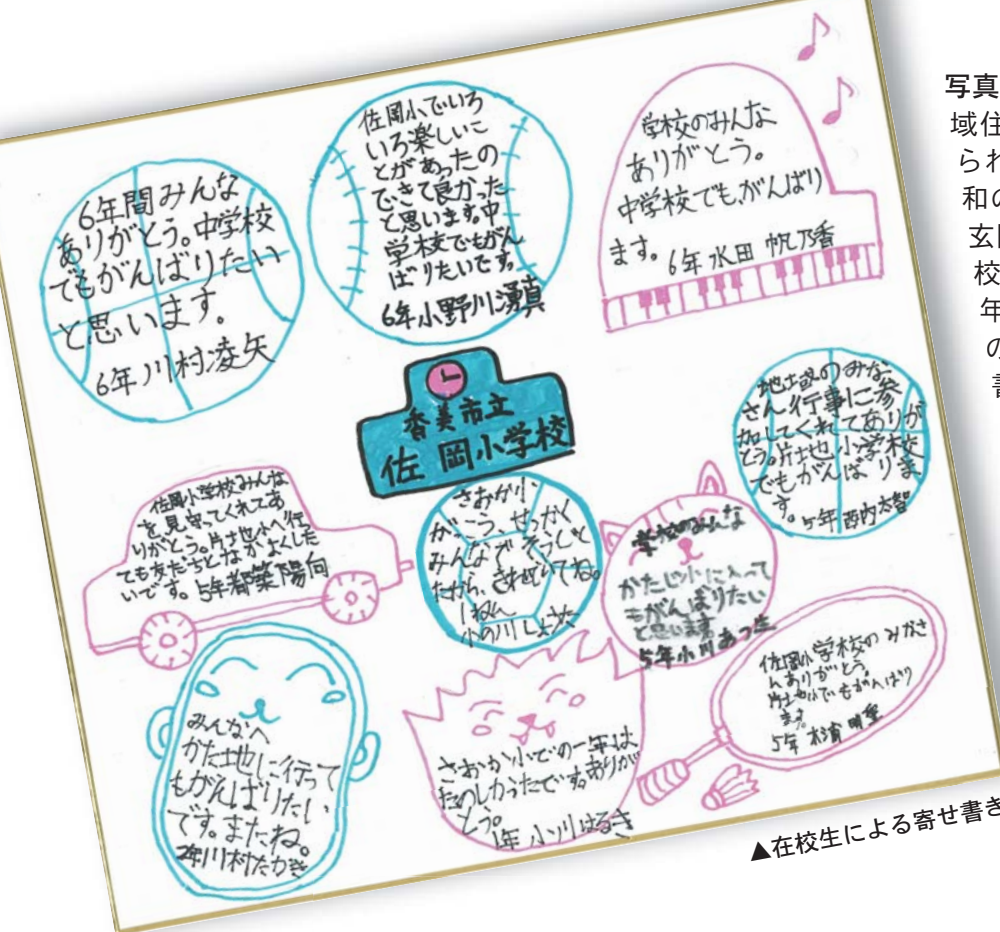 6年間みんな
ありがとう。中学校
でもがんばりたい
と思います。
6年川村凌矢
佐岡小でいろ
いろ楽しいこ
とがあったの
できて良かった
と思います。中
学校でもがん
ばりたいです。
6年小野川湧真
学校のみんな
ありがとう。
中学校でも、がんばり
ます。6年 水田 帆乃香
香美市立
佐岡小学校
地域のみな
さん行事に参
加してくれてありが
とう。片地小学校
でもがんばりま
す。5年西内太智
佐岡小学校みんな
を見守ってくれてあ
りがとう。片地小へ行
ても友だちとなかよくした
いです。5年都築陽向
さおか小
がっこう、せっかく
みんなで そうじを
たから、きれい
小の川しょうた
学校のみんな
かたじ小に入って
もがんばりたい
と思います
5年小川あつ生
佐岡小学校のみなさ
んありがとう。
片地小でもがんばり
ます。
5年
みんなへ
かた地に行って
もがんばりたい
です。またね。
2年川村たかき
さおか小での一年は
たのしかったです。ありが
とう。
1年 小川はるき
▲在校生による寄せ書き
写真
域住
られ
和の
玄関
校
年
の